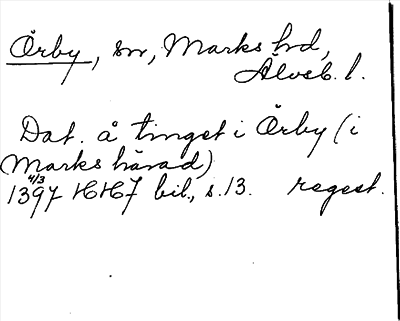 Örby, sn, Marks hd,
Älvsb. l.
Dat. å tinget i Örby (i
Marks härad)
4/3
1397 HH7 bil., s. 13. regest.